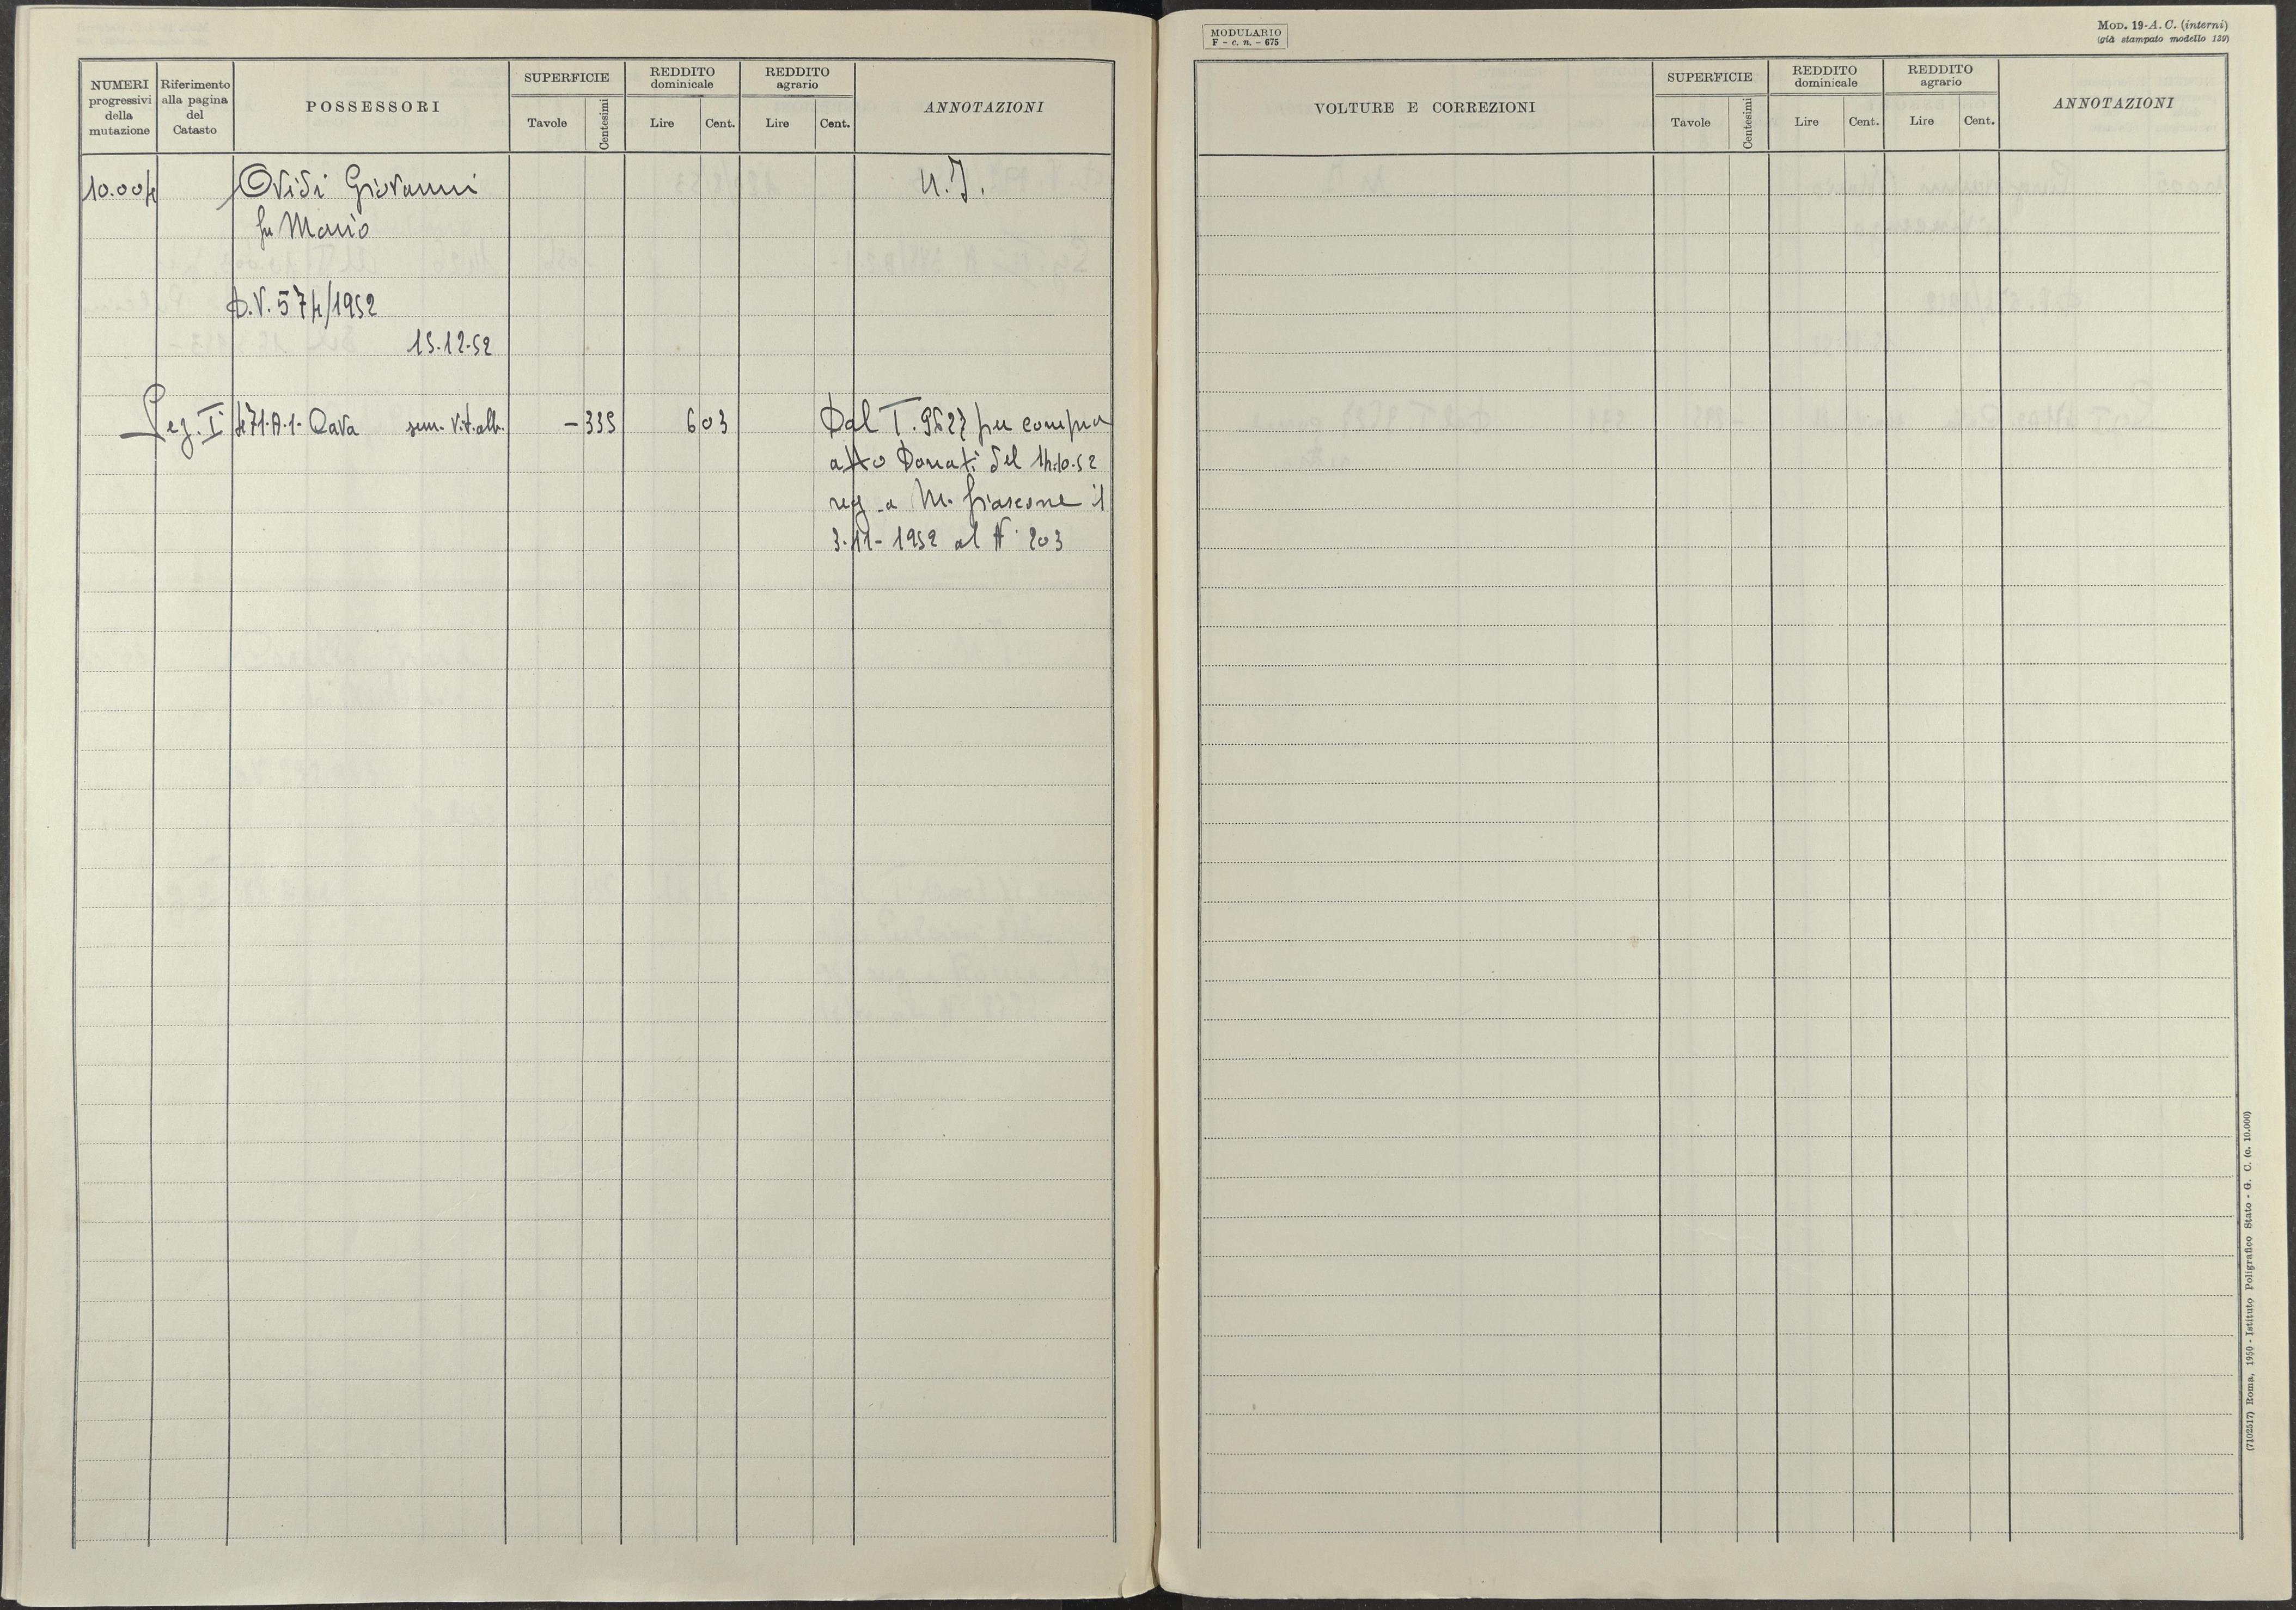 NUMERI progressivi della mutazione
Riferimento alla pagina del Catasto
POSSESSORI
SUPERFICIE
Tavole
Centesimi
REDDITO dominicale
Lire
Cent.
REDDITO agrario
Lire
Cent.
ANNOTAZIONI
10.004 Ovidi Giovanni N.I.
fu Mario
D.V. 574/1952
15.12.52
Sez. I 471.A.1- Cava sem. vit. alb. -335 6 03 Dal T. 9627 per compra
atto Donati del 14.10.52
reg. a M. fiascone il
3-11-1952 al N° 203
MODULARIO
F - c. n. - 675
MOD. 19-A. C. (interni)
(già stampato modello 139)
VOLTURE E CORREZIONI
SUPERFICIE
Tavole
Centesimi
REDDITO dominicale
Lire
Cent.
REDDITO agrario
Lire
Cent.
ANNOTAZIONI
(7102517) Roma, 1950 - Istituto Poligrafico Stato - G. C. (c. 10.000)